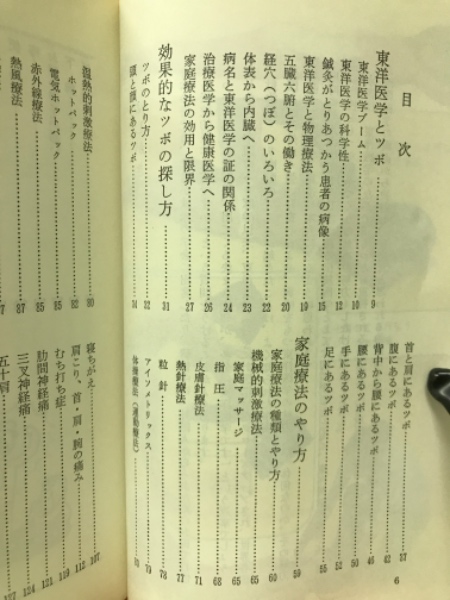 目次
東洋医学とツボ……9
東洋医学ブーム……10
東洋医学の科学性……12
鍼灸がとりあつかう患者の病像……15
東洋医学と物理療法……19
五臓六腑とその働き……20
経穴（つぼ）のいろいろ……22
体表から内臓へ……23
病名と東洋医学の証の関係……24
治療医学から健康医学へ……26
家庭療法の効用と限界……27
効果的なツボの探し方……31
ツボのとり方……32
頭と顔にあるツボ……34
首と肩にあるツボ……37
腹にあるツボ……42
背中から腰にあるツボ……46
腰にあるツボ……50
手にあるツボ……52
足にあるツボ……55
家庭療法のやり方……59
家庭療法の種類とやり方……60
機械的刺激療法……65
家庭マッサージ……65
指圧……68
皮膚針療法……71
熱針療法……77
粒針……78
アイソメトリックス……79
体操療法（運動療法）……80
6
温熱的刺激療法……80
ホットパック……82
電気ホットパック……85
赤外線療法……85
熱風療法……87
寝ちがえ……107
肩こり、首・肩・腕の痛み……112
むち打ち症……119
肋間神経痛……121
三叉神経痛……124
五十肩……127